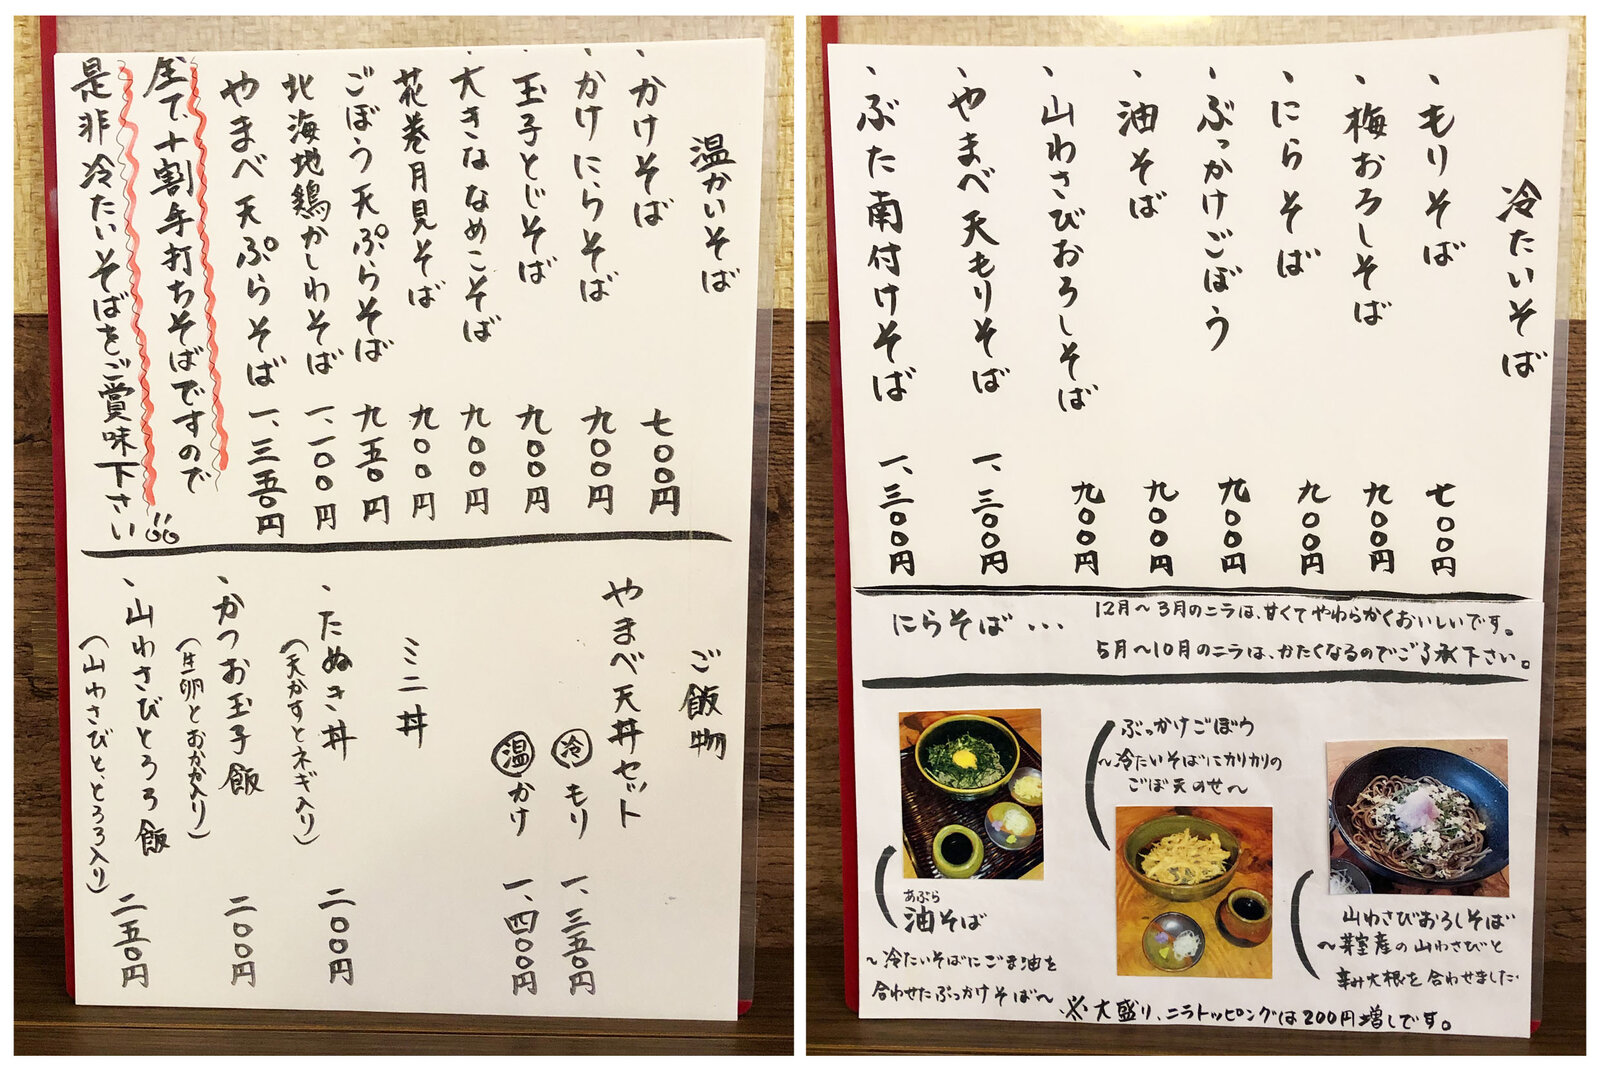 温かいそば
、かけそば 七〇〇円
、かけにらそば 九〇〇円
玉子とじそば 九〇〇円
大きななめこそば 九〇〇円
花巻月見そば 九〇〇円
ごぼう天ぷらそば 九五〇円
北海地鶏かしわそば 一、一〇〇円
やまべ天ぷらそば 一、三五〇円
全て、十割手打ちそばですので
是非冷たいそばをご賞味下さい!!
ご飯物
やまべ天丼セット
冷もり 一、三五〇円
温かけ 一、四〇〇円
ミニ丼
、たぬき丼 二〇〇円
(天かすとネギ入り)
、かつお玉子飯 二〇〇円
(生卵とおかか入り)
、山わさびとろろ飯 二五〇円
(山わさびと、とろろ入り)
冷たいそば
、もりそば 七〇〇円
、梅おろしそば 九〇〇円
、にらそば 九〇〇円
、ぶっかけごぼう 九〇〇円
、油そば 九〇〇円
、山わさびおろしそば 九〇〇円
、やまべ天もりそば 一、三〇〇円
、ぶた南付けそば 一、三〇〇円
にらそば・・・
12月〜3月のニラは、甘くてやわらかくおいしいです。
5月〜10月のニラは、かたくなるのでご了承下さい。
ぶっかけごぼう
〜冷たいそばにカリカリの
ごぼ天のせ〜
あぶら
油そば
〜冷たいそばにごま油を
合わせたぶっかけそば〜
山わさびおろしそば
〜芽室産の山わさびと
辛み大根を合わせました
※大盛り、ニラトッピングは200円増しです。